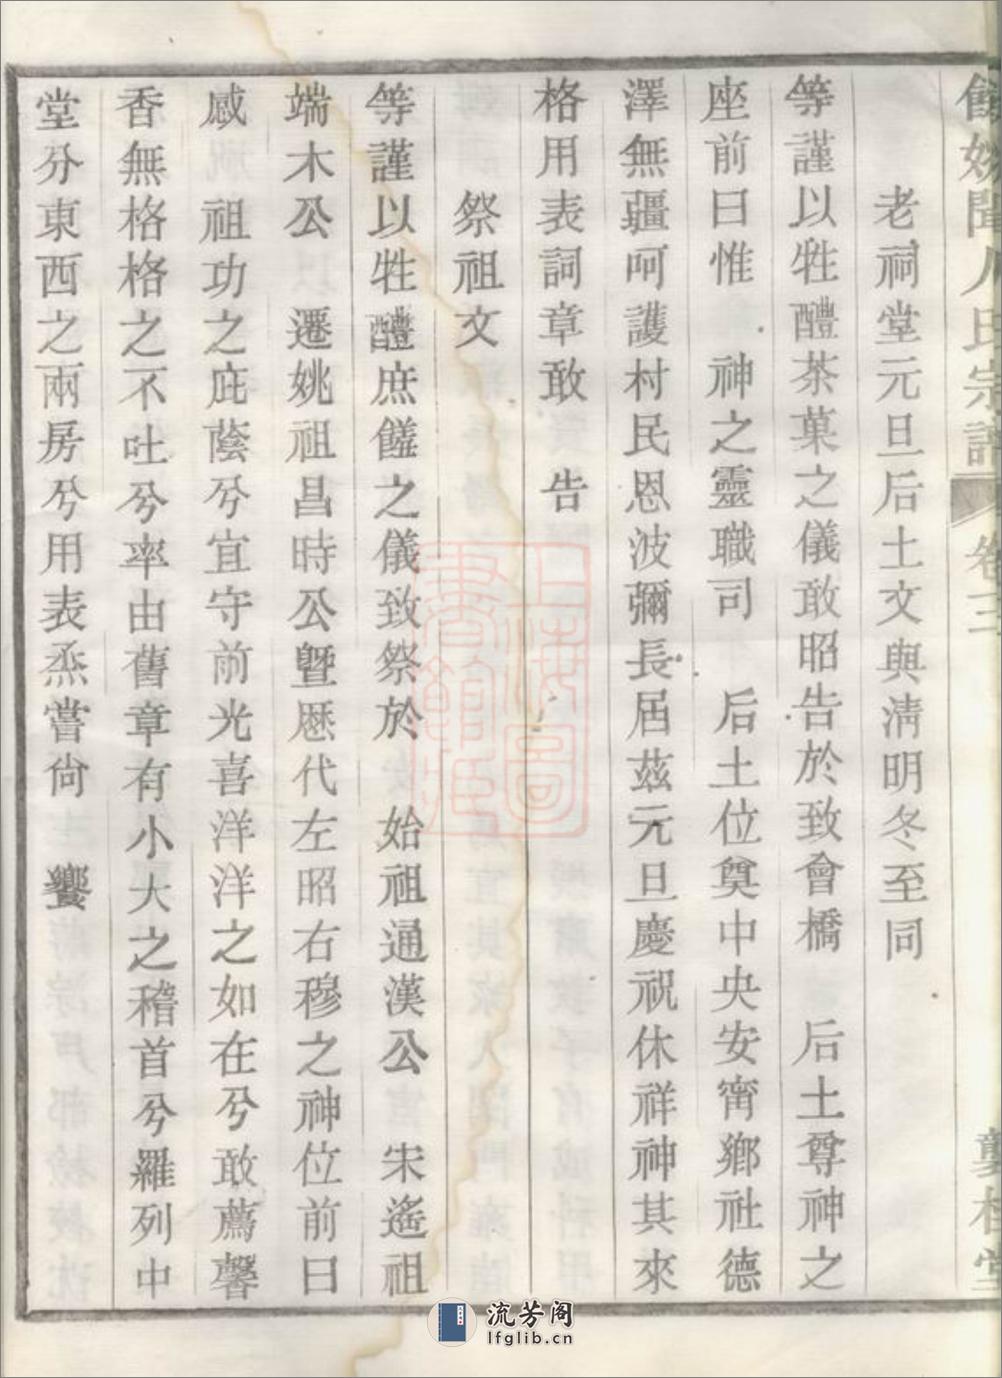 餘姚聞人氏宗譜 卷三
老祠堂元旦后土文與清明冬至同
等謹以牲醴茶菓之儀敢昭告於致會橋 后土尊神之
座前曰惟 神之靈職司 后土位奠中央安甯鄉社德
澤無疆呵護村民恩波彌長届茲元旦慶祝休祥神其來
格用表詞章敢 告
祭祖文
等謹以牲醴庶饈之儀致祭於 始祖通漢公 宋遙祖
端木公 遷姚祖昌時公曁歷代左昭右穆之神位前曰
感 祖功之庇蔭兮宜守前光喜洋洋之如在兮敢薦馨
香無格格之不吐兮率由舊章有小大之稽首兮羅列中
堂分東西之兩房兮用表烝嘗尙 饗
上海圖
書館藏
流芳阁
lfglib.cn